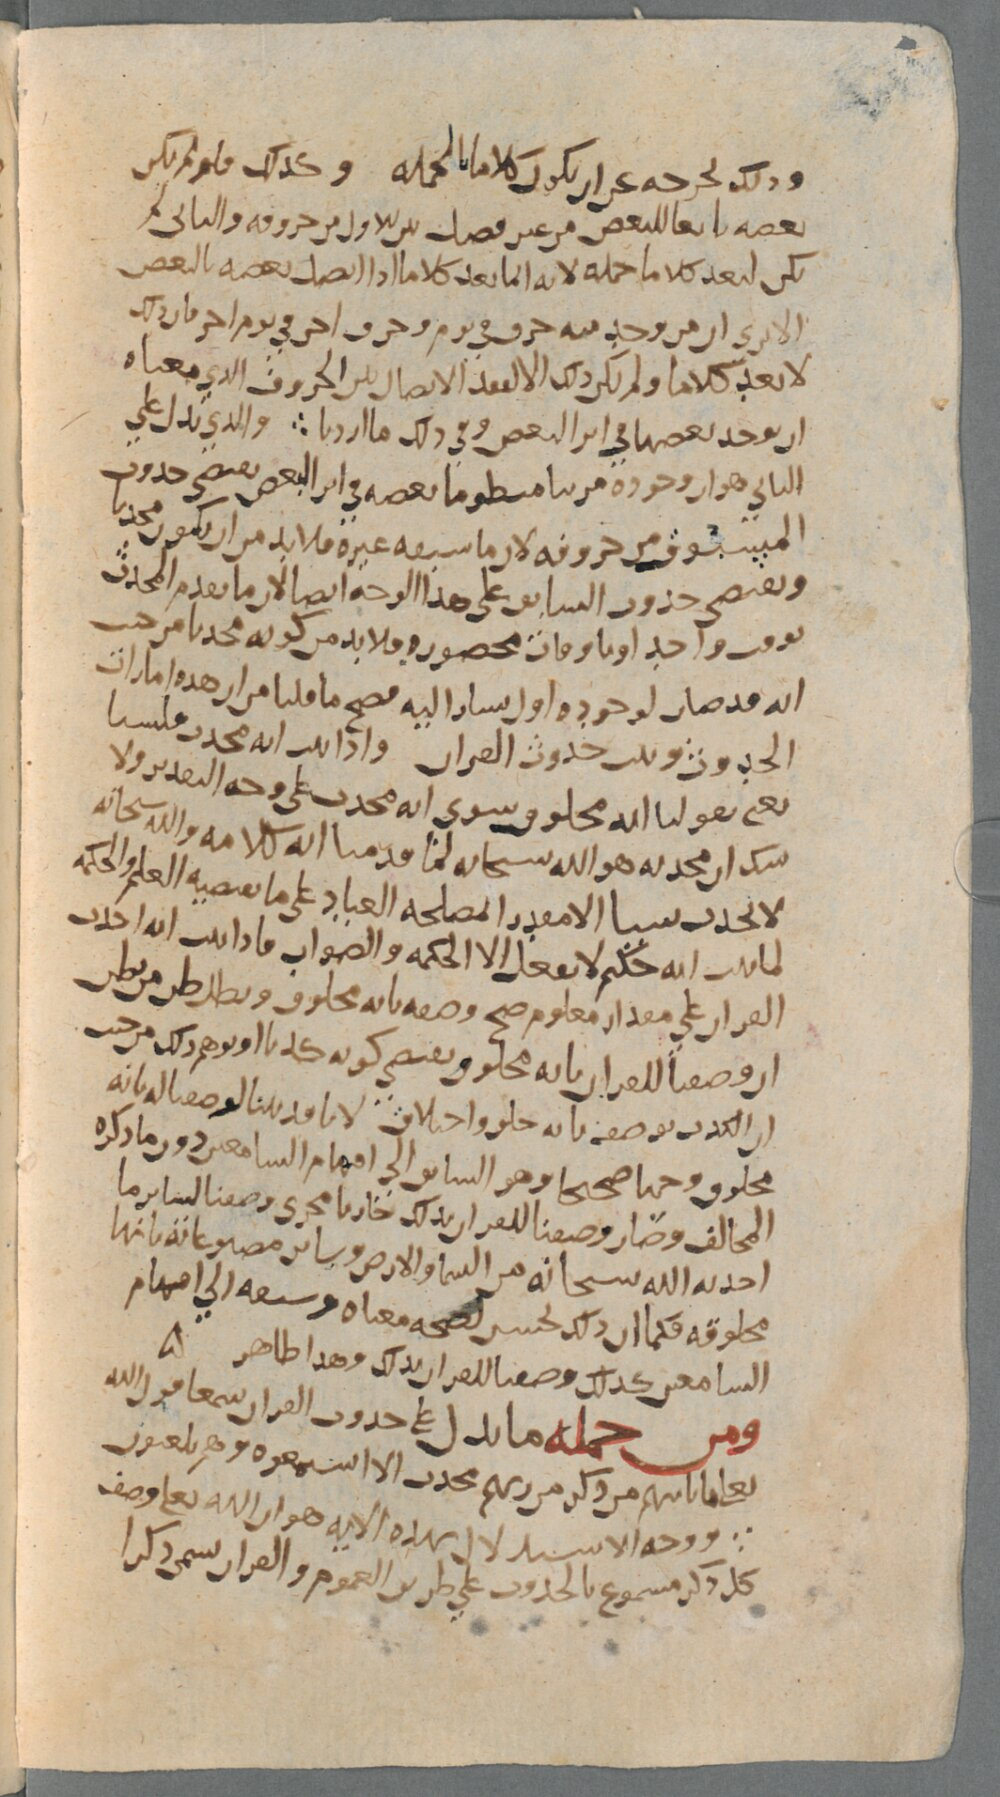 وذلك يخرجه عن ان يكون كلاما بالجملة وكذلك فلو لم يكن
بعضه تابعا للبعض من غير فصل بين الاول من حروفه والثاني لم
يكن ليعد كلاما جملة لانه انما يعد كلاما اذا اتصل بعضه بالبعض
الا ترى ان من وجد منه حرف في يوم وحرف اخر في يوم اخر فان ذلك
لا يعد كلاما ولم يكن ذلك الا لفقد الاتصال بين الحروف الذي معناه
ان يوجد بعضها في اثر البعض وفي ذلك ما اردنا ∴ والذي يدل على
الثاني هو ان وجوده مرتبا منظوما بعضه في اثر البعض يقتضي حدوث
المسبوق من حروفه لان ما سبقه غيره فلا بد من ان يكون محدثا
ويقتضي حدوث السابق على هذا الوجه ايضا لان ما تقدم المحدث
بوقت واحد او باوقات محصورة فلا بد من كونه محدثا من حيث
انه قد صار لوجوده اول يشار اليه فصح ما قلنا من ان هذه امارات
الحدوث وثبت حدوث القران واذا ثبت انه محدث فلسنا
نعني بقولنا انه مخلوق سوى انه محدث على وجه التقدير ولا
شك ان محدثه هو الله سبحانه لما قدمنا انه كلامه والله سبحانه
لا يحدث شيئا الا مقدرا لمصلحة العباد على ما يقتضيه العلم والحكمة
لما ثبت انه حكيم لا يفعل الا الحكمة والصواب فاذا ثبت انه احدث
القران على مقدار معلوم صح وصفه بانه مخلوق وبطل ظن من يظن
ان وصفنا للقران بانه مخلوق يقتضي كونه كذبا او يوهم ذلك من حيث
ان الكذب يوصف بانه خلق واختلاق لانا قد بينا لوصفنا له بانه
مخلوق وجها صحيحا وهو السابق الى افهام السامعين دون ما ذكره
المخالف وصار وصفنا للقران بذلك جاريا مجرى وصفنا لسائر ما
احدثه الله سبحانه من السماء والارض وسائر مصنوعاته بانها
مخلوقة فكما ان ذلك يحسن لصحة معناه وسبقه الى افهام
السامعين كذلك وصفنا للقران بذلك وهذا ظاهر ۸
ومن جملة ما يدل على حدوث القران سمعا قول الله
تعالى ما ياتيهم من ذكر من ربهم محدث الا استمعوه وهم يلعبون
∴ ووجه الاستدلال بهذه الاية هو ان الله تعالى وصف
كل ذكر مسموع بالحدوث على طريق العموم والقران يسمى ذكرا